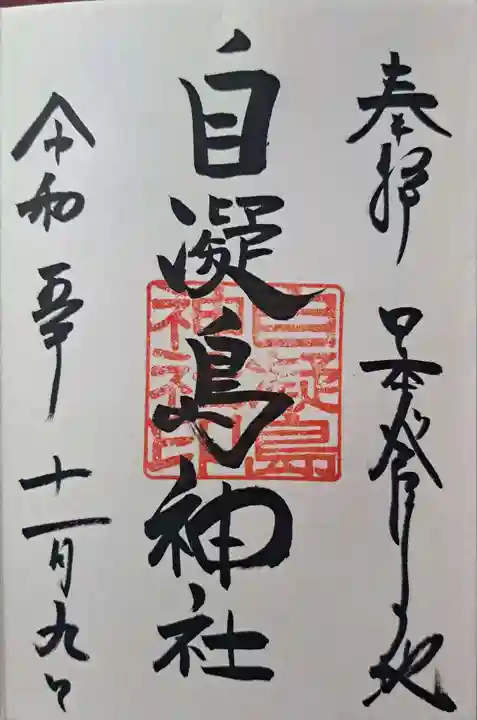 奉拝 日本発祥の地
自凝島神社
自凝島
神社印
令和五年 十一月九日